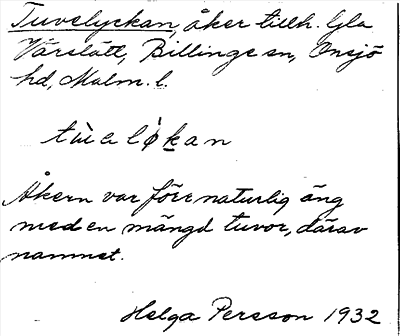 Tuvelyckan, åker tillh. Gla
Vårslätt, Billinge sn, Onsjö
hd, Malm. l.
tùalø̀kan
Åkern var före naturlig äng
med en mängd tuvor, därav
namnet.
Helga Persson 1932